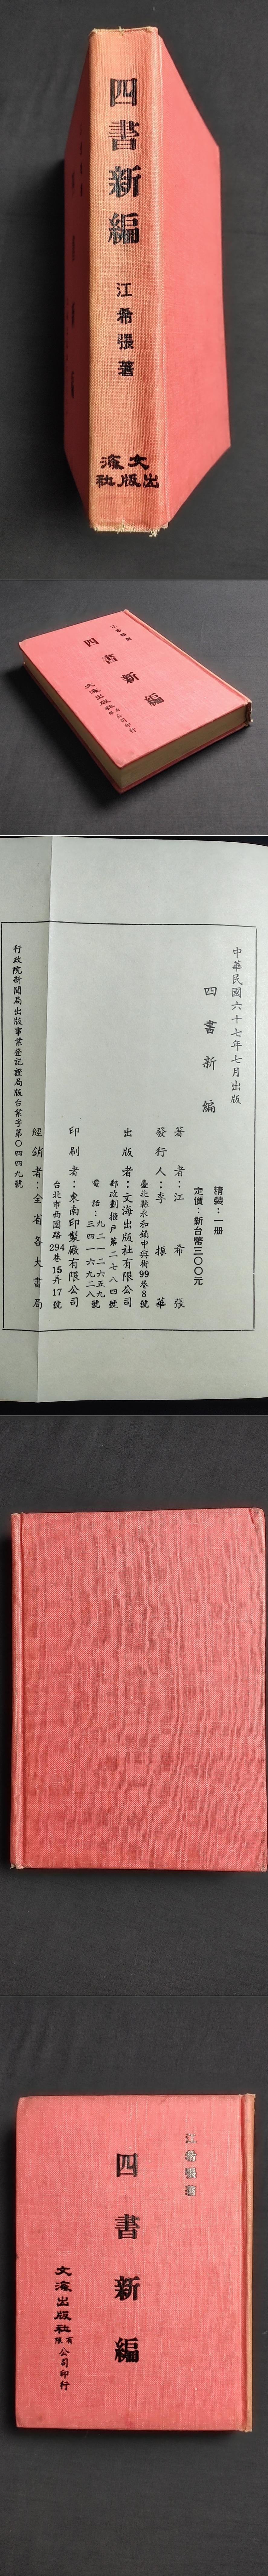 四書新編
江希張著
文海
出版社
江希張著
四書新編
文海出版社有限公司印行
中華民國六十七年七月出版
四書新編
精裝：一册
定價：新台幣三〇〇元
著者：江希張
發行人：李振華
臺北縣永和鎮中興街99巷8號
出版者：文海出版社有限公司
郵政劃撥戶第二七八四號
電話：九二一二六五九
三四一六九二八號
印刷者：東南印製廠有限公司
台北市西園路294巷15弄17號
經銷者：全省各大書局
行政院新聞局出版事業登記證局版台業字第〇四四九號
江希張著
四書新編
文海出版社有限公司印行